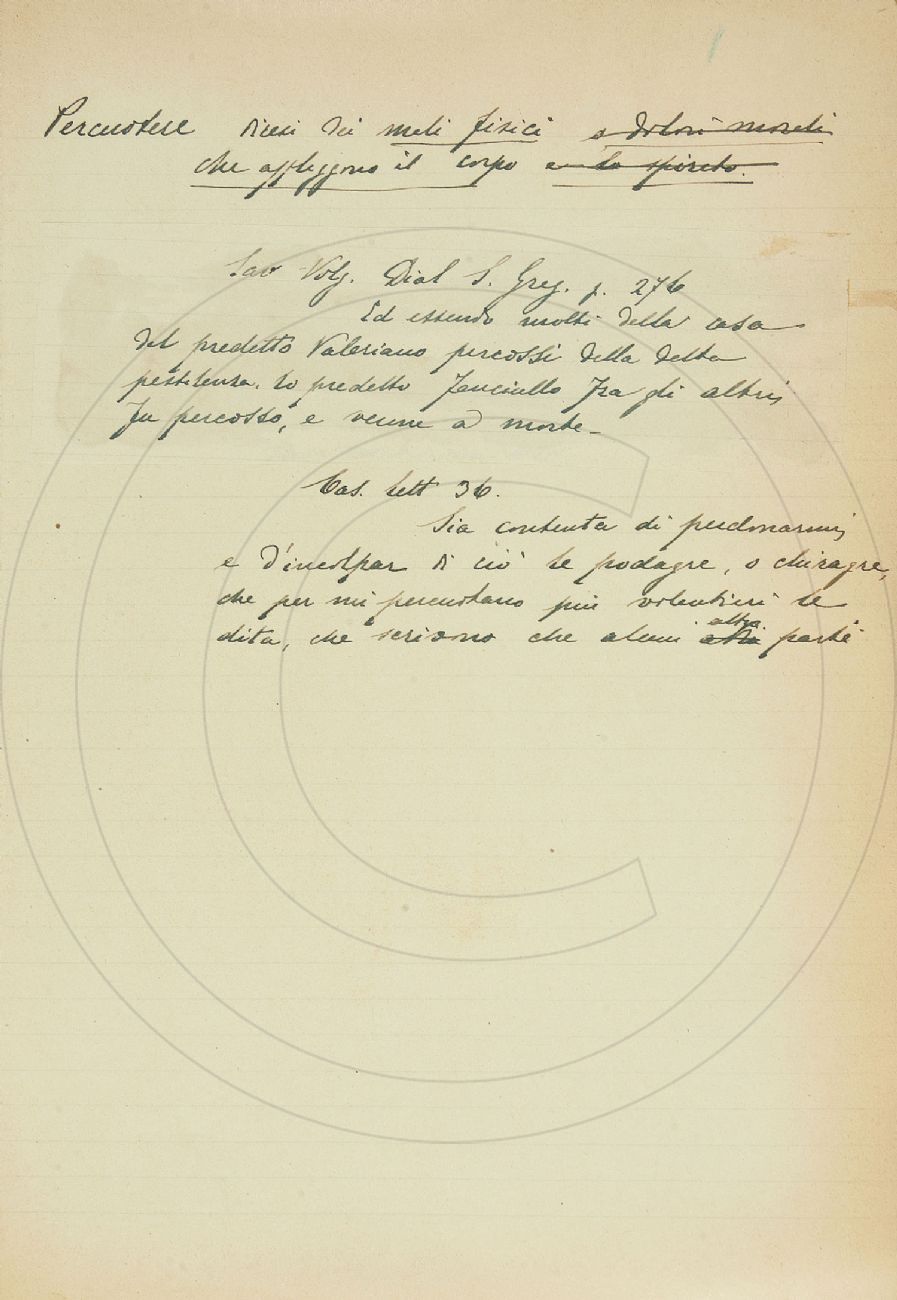 Percuotere dicesi dei mali fisici o dolori morali
che affliggono il corpo e lo spirito.
Cav Volg. Dial S. Greg. p. 276
Ed essendo molti della casa
del predetto Valeriano percossi della detta
pestilenza. lo predetto fanciullo fra gli altri
fu percosso, e venne a morte_
Cas. lett 36.
Sia contenta di perdonarmi
e d'incolpar di ciò le podagre, o chiragre,
che per mi percuotano più volentieri le
dita, che scrivono che alcuni altra parte